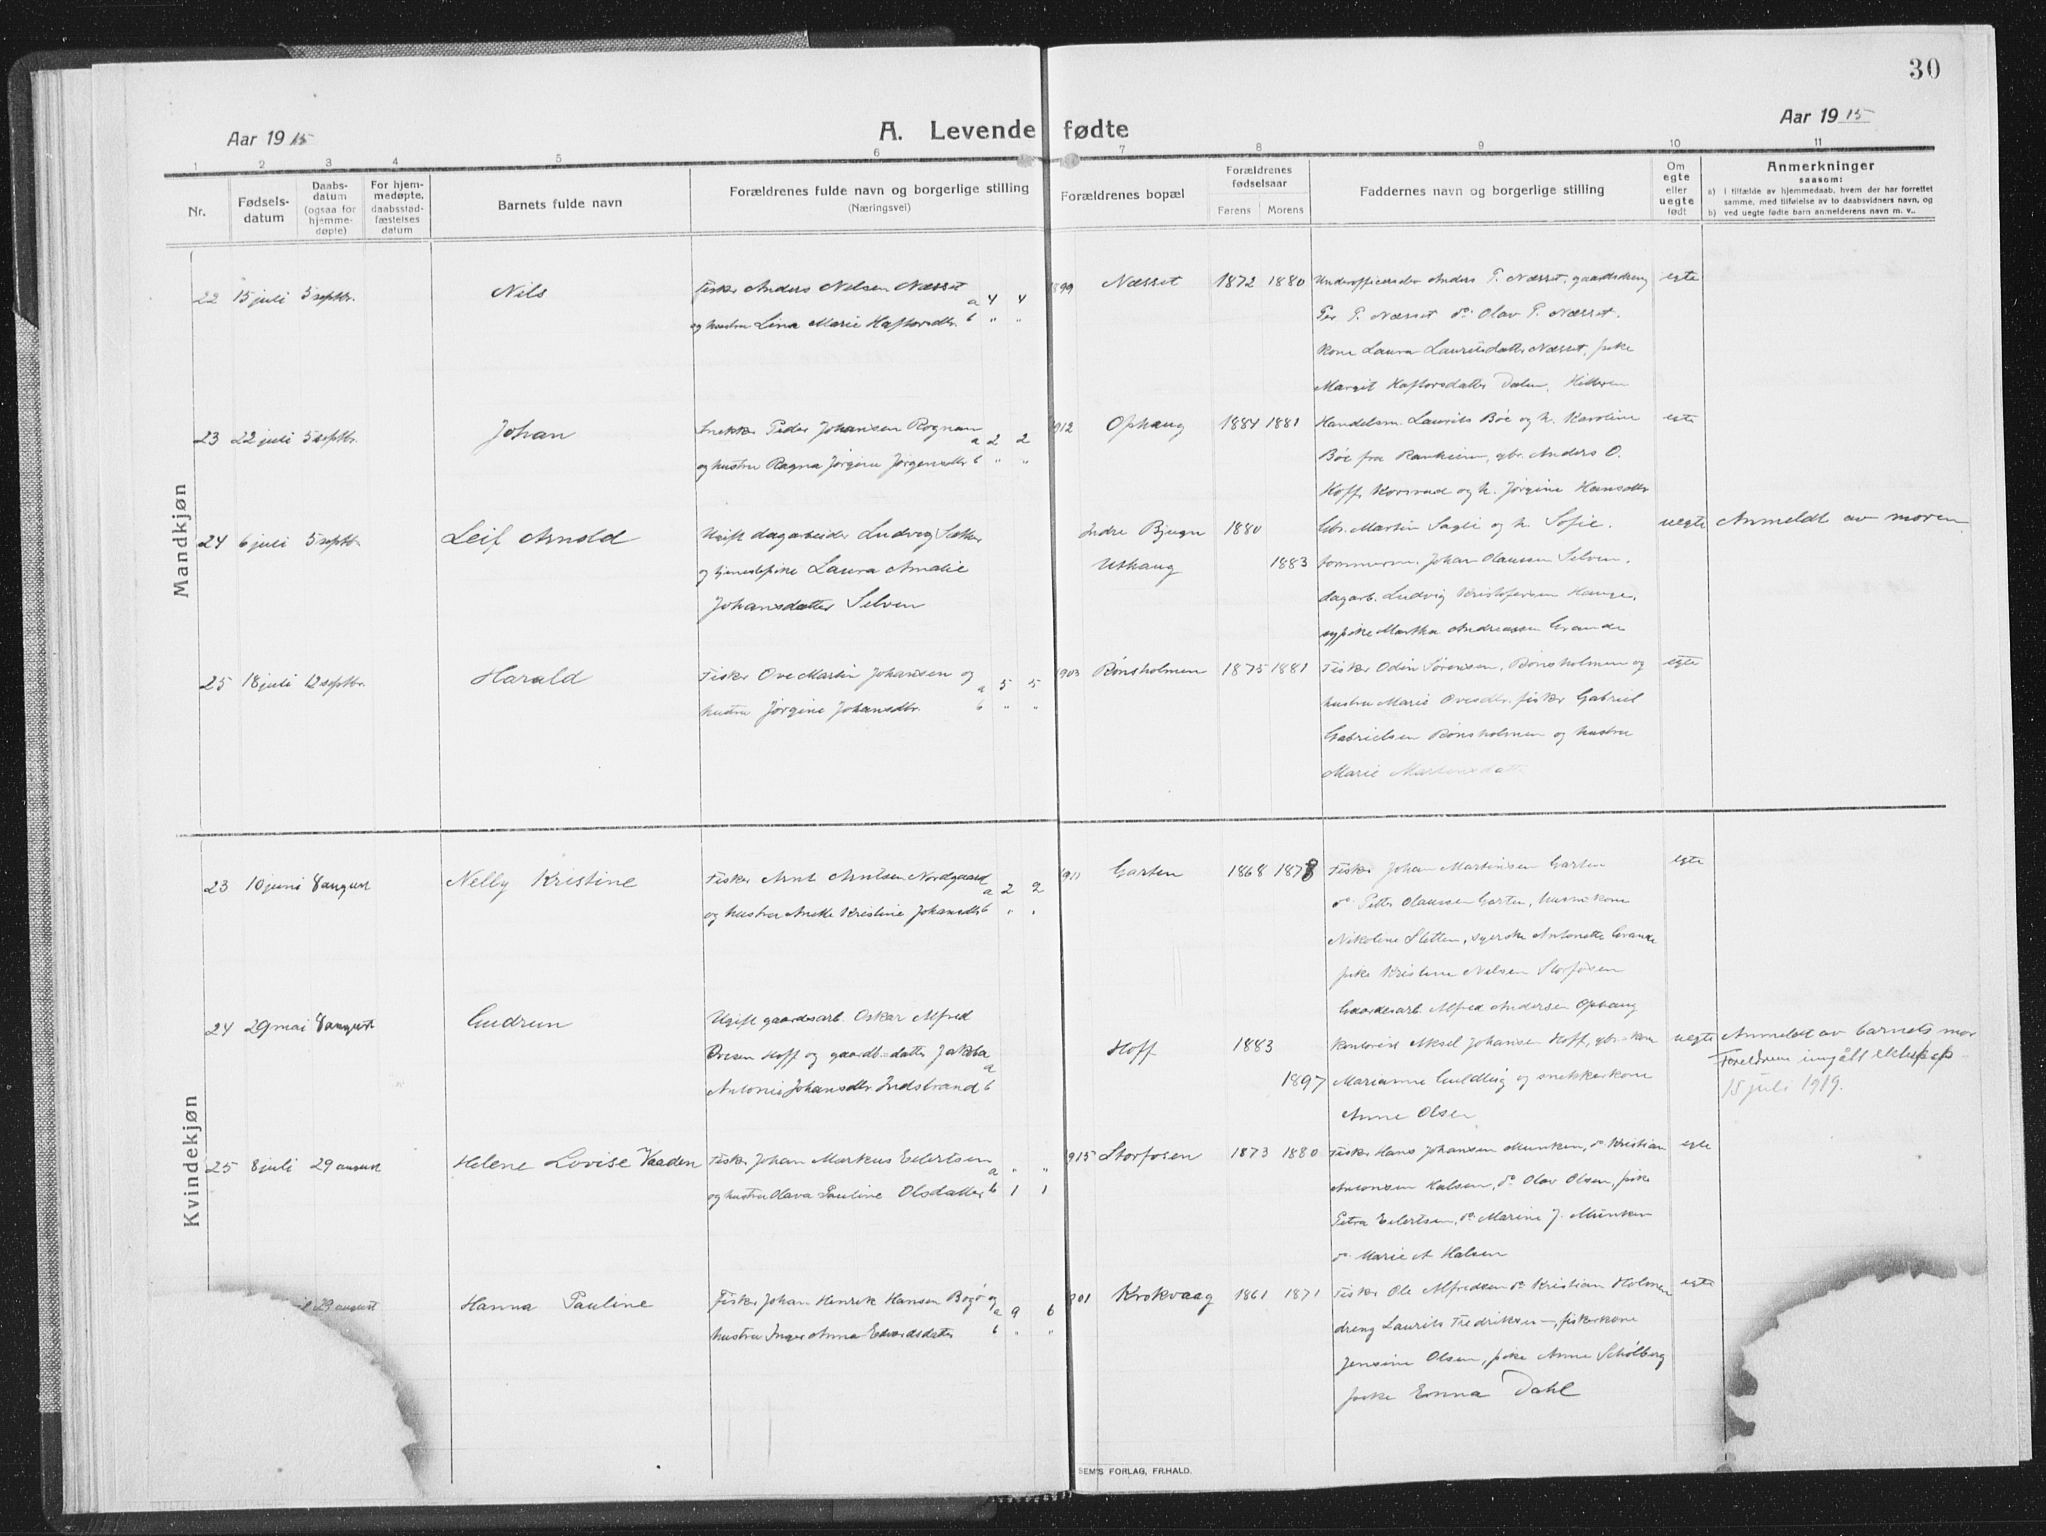 30
Aar 1915
A. Levende fødte
Aar 1915
1 2 3 4 5 6 7 8 9 10 11
Nr.
Fødsels-
datum
Daabs-
datum
(ogsaa for
hjemme-
døpte)
For hjem-
medøpte,
daabsstad-
fæstelses
datum
Barnets fulde navn
Forældrenes fulde navn og borgerlige stilling
(Næringsvei)
Forældrenes bopæl
Forældrenes
fødselsaar
Farens Morens
Faddernes navn og borgerlige stilling
Om
egte
eller
uegte
født
Anmerkninger
saasom:
a) I tilfælde av hjemmedaab, hvem der har forrettet
samme, med tilføielse av to daabsvidners navn, og
b) ved uegte fødte barn anmelderens navn m. v..
Mandkjøn
22 15 juli 5 septbr. Nils
Fisker Anders Nelsen Næsset
og hustru Lina Marie Haftorsdtr.
a 4 4
b " "
1899 Næsset 1872 1880
Underofficerselev Anders P. Næsset, gaardsdreng
Per P. Næsset do Olav P. Næsset.
Kone Laura Lauritsdatter Næsset, pike
Margit Haftorsdatter Dalen, Hitteren
egte
23 22 juli 5 septbr. Johan
Snekker Peder Johansen Rognan
og hustru Ragna Jørgine Jørgensdtr
a 2 2
b " "
1912 Ophaug 1884 1881
Handelsm. Laurits Böe og h. Karoline
Böe fra Rankeim, gbr. Anders O.
Hoff, Korsrud og h. Jørgine Hansdtr
egte
24 6 juli 5 septbr. Leif Arnold
Ugift dagarbeider Ludvig Sætter
og tjenestepike Laura Amalie
Johansdatter Selven
Indre Bjugn 1880
Uthaug 1883
Gbr. Martin Sagli og h. Sofie.
tømmerm. Johan Olaussen Selven,
dagarb. Ludvig Kristofersen Hauge,
sypike Martha Andreassen Grande
uegte Anmeldt av moren
25 18 juli 12 septbr. Harald
Fisker Ove Martin Johansen og
hustru Jørgine Johansdtr.
a 5 5
b " "
1903 Bonsholmen 1875 1881
Fisker Odin Sørensen, Bonsholmen og
hustru Marie Ovesdtr. fisker Gabriel
Gabrielsen Bonsholmen og hustru
Marie Martensdatt.
egte
Kvindekjøn
23 10 juni 8 august Nelly Kristine
Fisker Arnt Arntsen Nordgaard
og hustru Anette Kristine Johansdtr
a 2 2
b " "
1911 Garten 1868 1878
Fisker Johan Martinsen Garten
do Petter Olaussen Garten, huskone
Nikoline Sletten, syerske Antonette Grande
pike Kristine Nilsen Storfosen
Gaardsarb. Alfred Andersen Ophaug
egte
24 29 mai 8 august Gudrun
Ugift gaardsarb. Oskar Alfred
Ovesen Hoff og gaardb.-datter Jakoba
Antonie Johansdtr Indstrand
a
b
Hoff 1883
1897
Kontorist Aksel Johansen Hoff, gbr.-kone
Marianne Guldteig og snekkerkone
Anne Olsen
uegte Anmeldt av barnets mor
Foreldrene inngått ekteskap
15 juli 1919.
25 8 juli 29 august Helene Lovise Vaaden
Fisker Johan Markus Eilertsen
og hustru Olava Pauline Olsdatter
a " "
b 1 1
1915 Storfosen 1873 1880
Fisker Hans Johansen Munken, do Kristian
Antonsen Halsen, do Olav Olsen, pike
Petra Eilertsen, do Marine J. Munken
do Marie A Halsen
egte
29 august Hanna Pauline
Fisker Johan Henrik Hansen Bogø og
hustru Inger Anna Edvardsdatter
a 9 6
b " "
1901 Krokvaag 1861 1871
Fisker Ole Alfredsen do Kristian Holm
dreng Laurits Fredriksen, fiskerkone
Jensine Olsen, pike Anne Schølberg
pike Emma Dahl
egte
SEM'S FORLAG, FR.HALD.